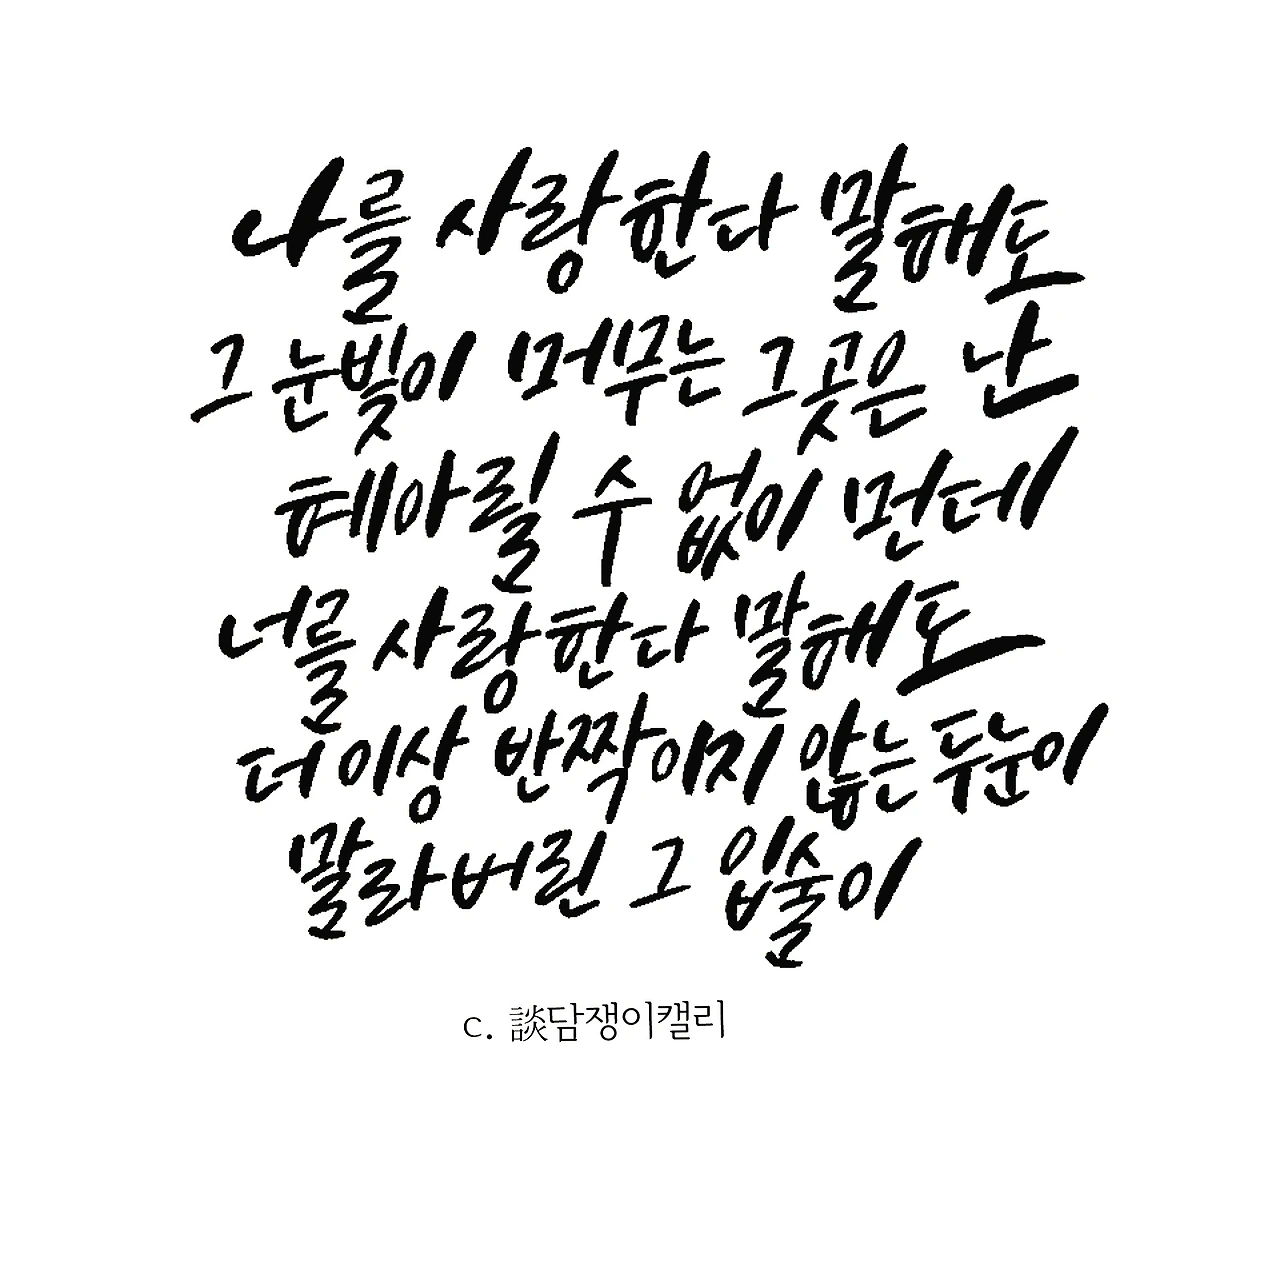 나를 사랑한다 말해도
그 눈빛이 머무는 그곳은 난
헤아릴 수 없이 먼데
너를 사랑한다 말해도
더 이상 반짝이지 않는 두 눈이
말라버린 그 입술이
c. 談담쟁이캘리